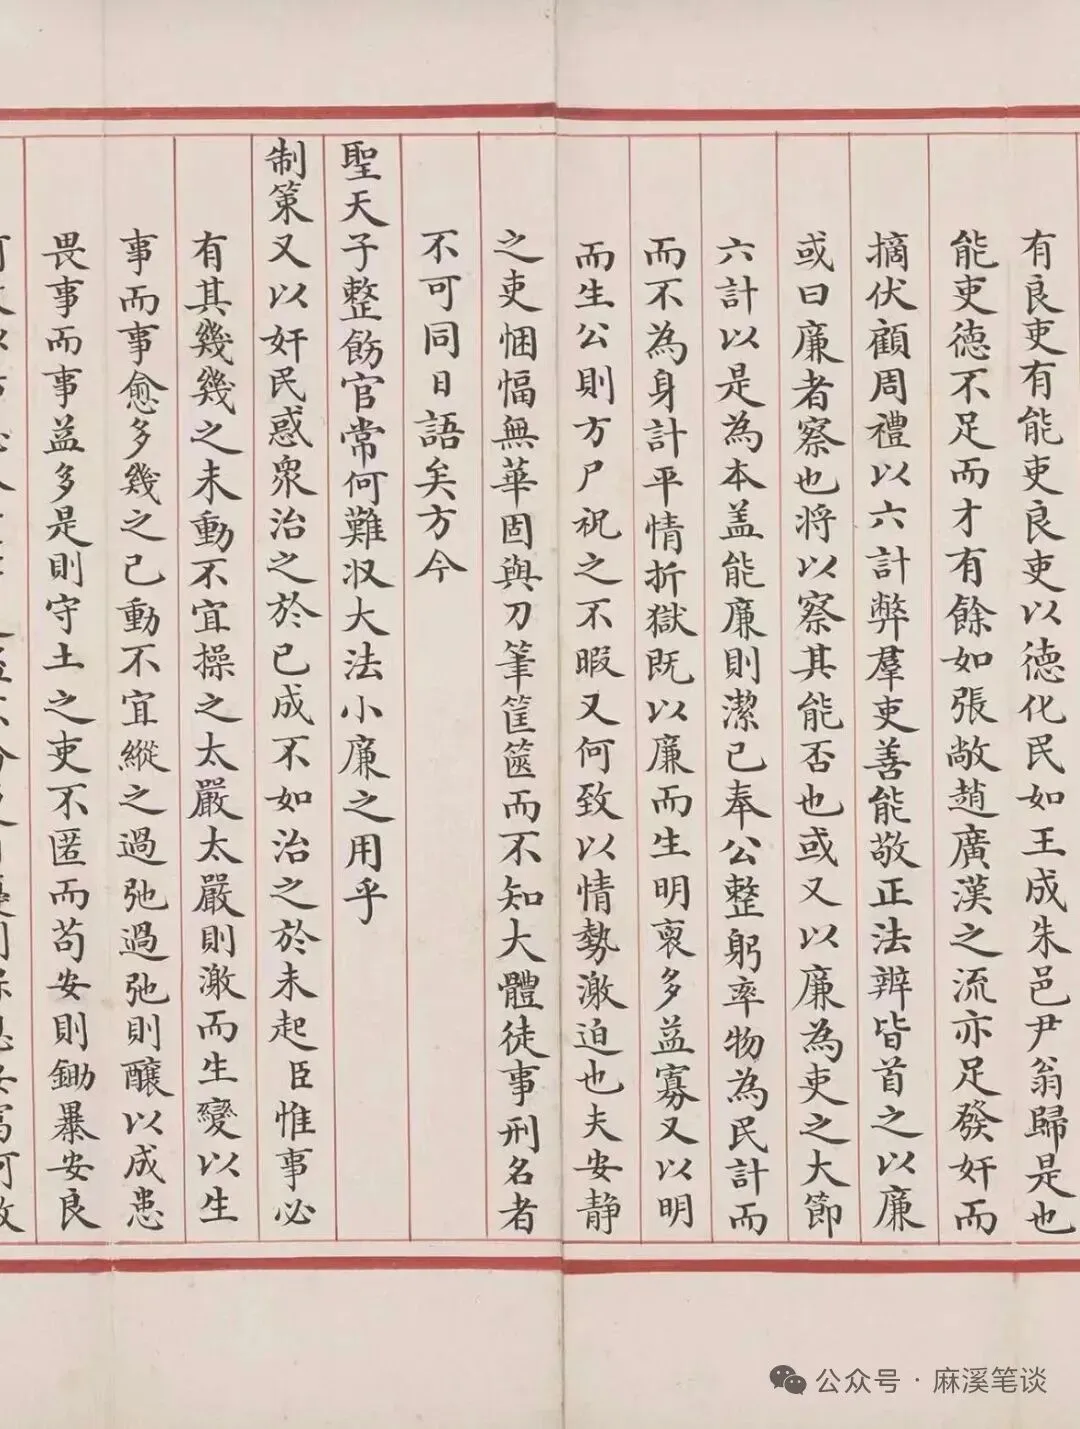 有良吏有能吏良吏以德化民如王成朱邑尹翁歸是也
能吏德不足而才有餘如張敞趙廣漢之流亦足發奸而
摘伏顧周禮以六計弊羣吏善能敬正法辨皆首之以廉
或曰廉者察也將以察其能否也或又以廉為吏之大節
六計以是為本盖能廉則潔已奉公整躬率物為民計而
而不為身計平情折獄既以廉而生明裒多益寡又以明
而生公則方尸祝之不暇又何致以情勢激迫也夫安静
之吏悃愊無華固與刀筆筐篋而不知大體徒事刑名者
不可同日語矣方今
聖天子整飭官常何難収大法小廉之用乎
制策又以奸民惑衆治之於已成不如治之於未起臣惟事必
有其幾幾之未動不宜操之太嚴太嚴則激而生變以生
事而事愈多幾之已動不宜縱之過弛過弛則釀以成患
畏事而事益多是則守土之吏不匿而苟安則鋤暴安良
公众号·麻溪笔谈